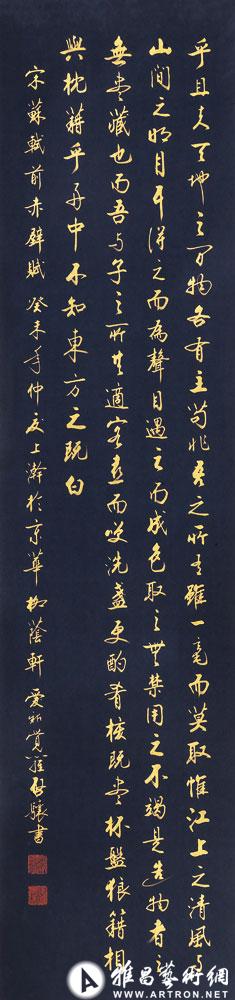 乎且夫天地之间物各有主苟非吾之所有雖一毫而莫取惟江上之清風与
山間之明月耳得之而為聲目遇之而成色取之無禁用之不竭是造物者之
無盡藏也而吾与子之所共適客喜而咲洗盞更酌肴核既盡杯盤狼籍相
與枕藉乎舟中不知東方之既白
宋蘇軾前赤壁賦癸未年仲夏上澣於京華柳蔭軒愛新覺羅啟驤書
雅昌藝術網
WWW.ARTRON.NET